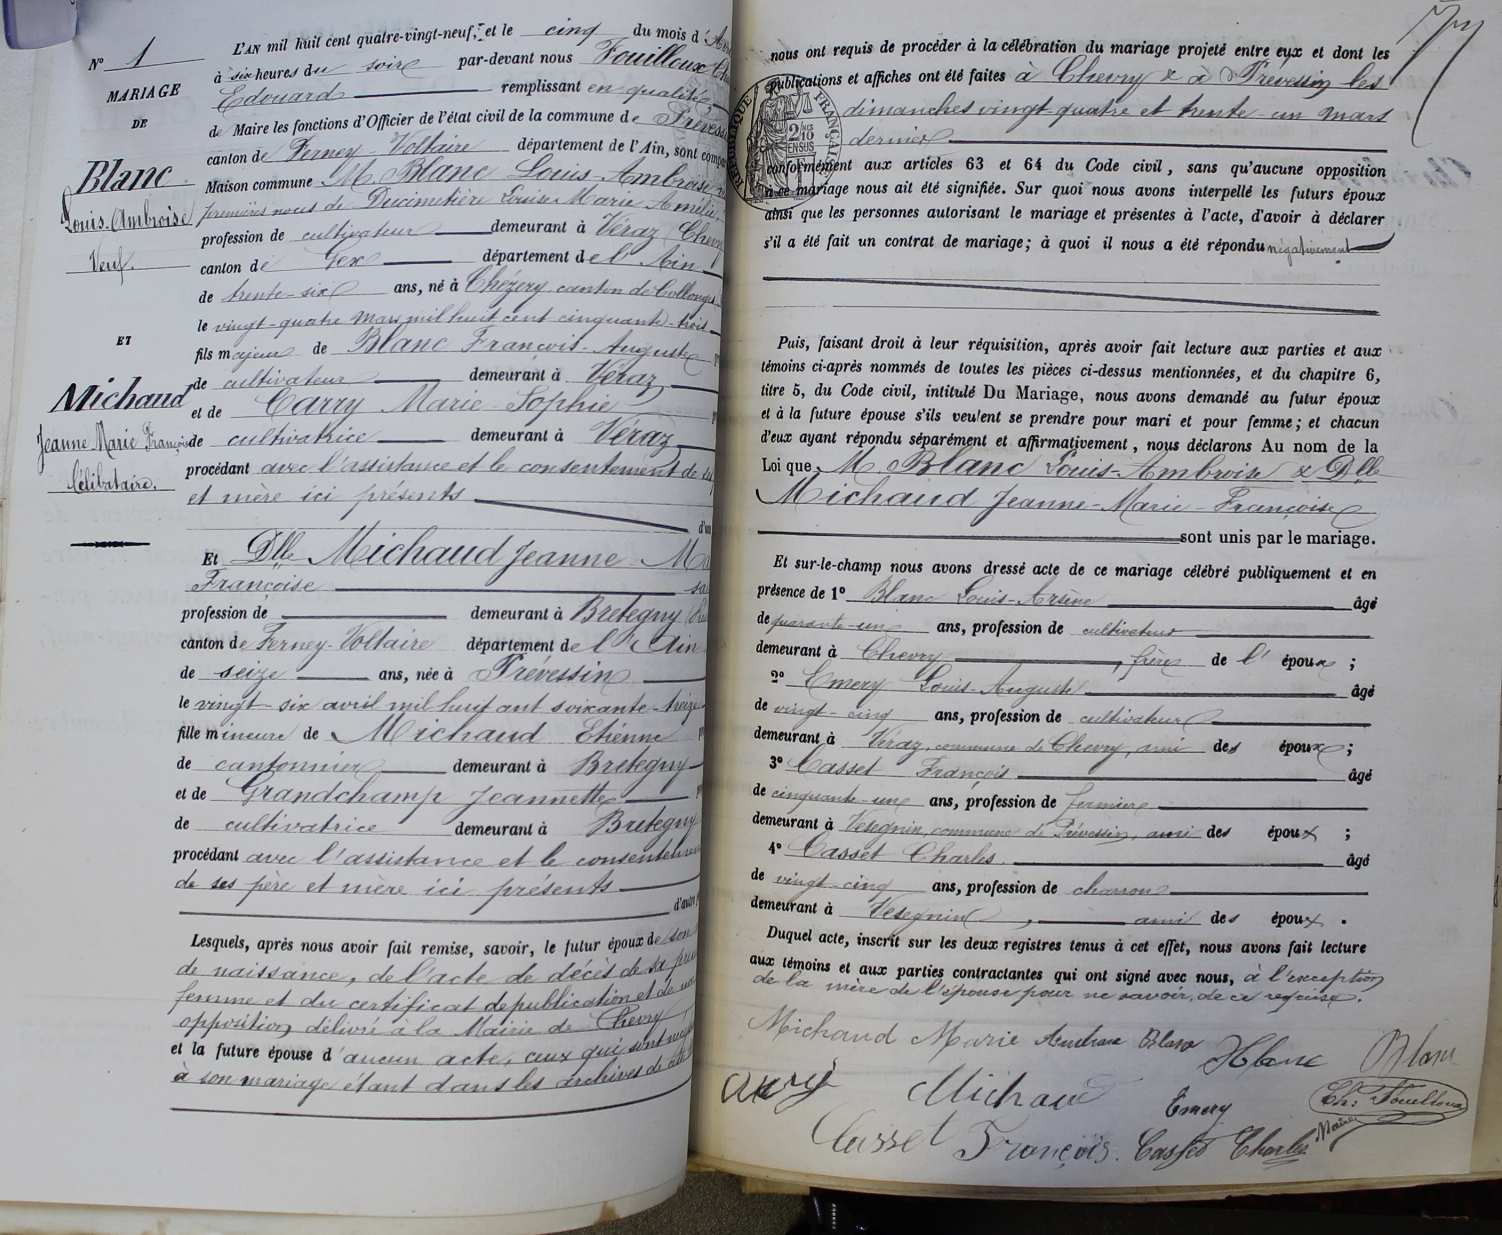 N° 1
MARIAGE
DE
Blanc
Louis-Ambroise
Veuf.
ET
Michaud
Jeanne-Marie Françoise
Célibataire.
L'AN mil huit cent quatre-vingt-neuf, et le cinq du mois d'
à six heures du soir par-devant nous Fouilloux
Edouard remplissant en qualité
de Maire les fonctions d'Officier de l'état civil de la commune de
canton de Ferney-Voltaire département de l'Ain, sont
Maison commune M. Blanc Louis-Ambroise
premières noces de Ducimetière Louise Marie Amélie,
profession de cultivateur demeurant à Véraz
canton de Gex département de l'Ain
de trente-six ans, né à Chézery canton de Collonges
le vingt-quatre mars mil huit cent cinquante-trois
fils majeur de Blanc François-Auguste
de cultivateur demeurant à Véraz
et de Carry Marie-Sophie
de cultivatrice demeurant à Véraz
procédant avec l'assistance et le consentement de
et mère ici présents
Et Dlle Michaud Jeanne-
Françoise
profession de demeurant à Bretegny
canton de Ferney-Voltaire département de l'Ain
de seize ans, née à Prévessin
le vingt-six avril mil huit cent soixante-treize
fille mineure de Michaud Etienne
de cantonnier demeurant à Bretegny
et de Grandchamp Jeannette
de cultivatrice demeurant à Bretegny
procédant avec l'assistance et le
de ses père et mère ici présents
Lesquels, après nous avoir fait remise, savoir, le futur époux de son
de naissance, de l'acte de décès de sa
femme et du certificat de publication et de
opposition délivré à la Mairie de Chevry
et la future épouse d'aucun acte, ceux qui sont
à son mariage étant dans les archives de
nous ont requis de procéder à la célébration du mariage projeté entre eux et dont les
publications et affiches ont été faites à Chevry & à Prévessin les
dimanches vingt-quatre et trente-un mars
dernier
conformément aux articles 63 et 64 du Code civil, sans qu'aucune opposition
à ce mariage nous ait été signifiée. Sur quoi nous avons interpellé les futurs époux
ainsi que les personnes autorisant le mariage et présentes à l'acte, d'avoir à déclarer
s'il a été fait un contrat de mariage; à quoi il nous a été répondu négativement
Puis, faisant droit à leur réquisition, après avoir fait lecture aux parties et aux
témoins ci-après nommés de toutes les pièces ci-dessus mentionnées, et du chapitre 6,
titre 5, du Code civil, intitulé Du Mariage, nous avons demandé au futur époux
et à la future épouse s'ils veulent se prendre pour mari et pour femme; et chacun
d'eux ayant répondu séparément et affirmativement, nous déclarons Au nom de la
Loi que M. Blanc Louis-Ambroise & Dlle
Michaud Jeanne-Marie-Françoise
sont unis par le mariage.
Et sur-le-champ nous avons dressé acte de ce mariage célébré publiquement et en
présence de 1° Blanc Louis-Arsène âgé
de quarante-un ans, profession de cultivateur
demeurant à Chevry, frère de l'époux;
2° Emery Louis-Auguste âgé
de vingt-cinq ans, profession de cultivateur
demeurant à Véraz, commune de Chevry, ami des époux;
3° Casset François âgé
de cinquante-un ans, profession de fermier
demeurant à Vésegnin, commune de Prévessin, ami des époux;
4° Casset Charles âgé
de vingt-cinq ans, profession de charron
demeurant à Vésegnin, ami des époux.
Duquel acte, inscrit sur les deux registres tenus à cet effet, nous avons fait lecture
aux témoins et aux parties contractantes qui ont signé avec nous, à l'exception
de la mère de l'épouse pour ne savoir, de ce requise.
Michaud Marie Blanc Blanc
Michaud Emery Ch: Fouilloux
Casset François. Casset Charles Maire
RÉPUBLIQUE FRANÇAISE